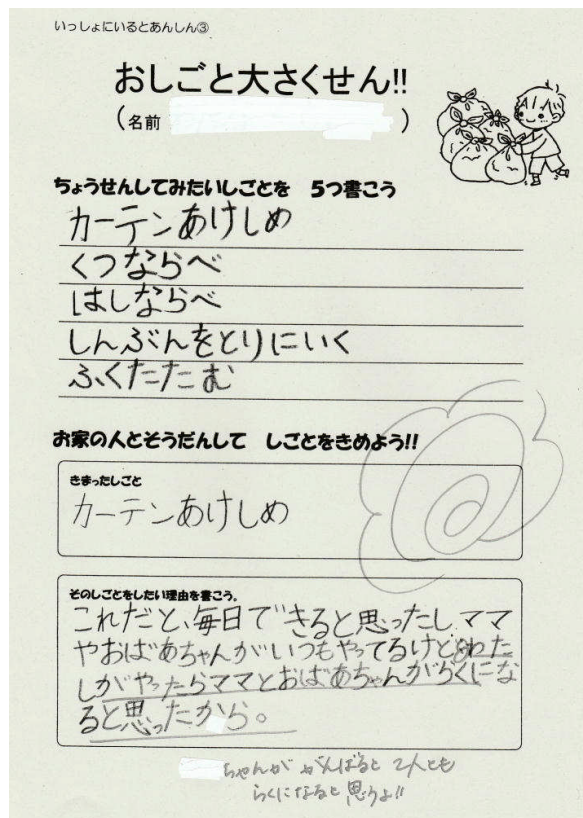 いっしょにいるとあんしん③
おしごと大さくせん!!
(名前 )
ちょうせんしてみたいしごとを 5つ書こう
カーテンあけしめ
くつならべ
はしならべ
しんぶんをとりにいく
ふくたたむ
お家の人とそうだんして しごとをきめよう!!
きまったしごと
カーテンあけしめ
そのしごとをしたい理由を書こう。
これだと、毎日できると思ったし、ママ
やおばあちゃんがいつもやってるけどわた
しがやったらママとおばあちゃんがらくにな
ると思ったから。
ちゃんが がんばると 2人とも
らくになると思うよ!!